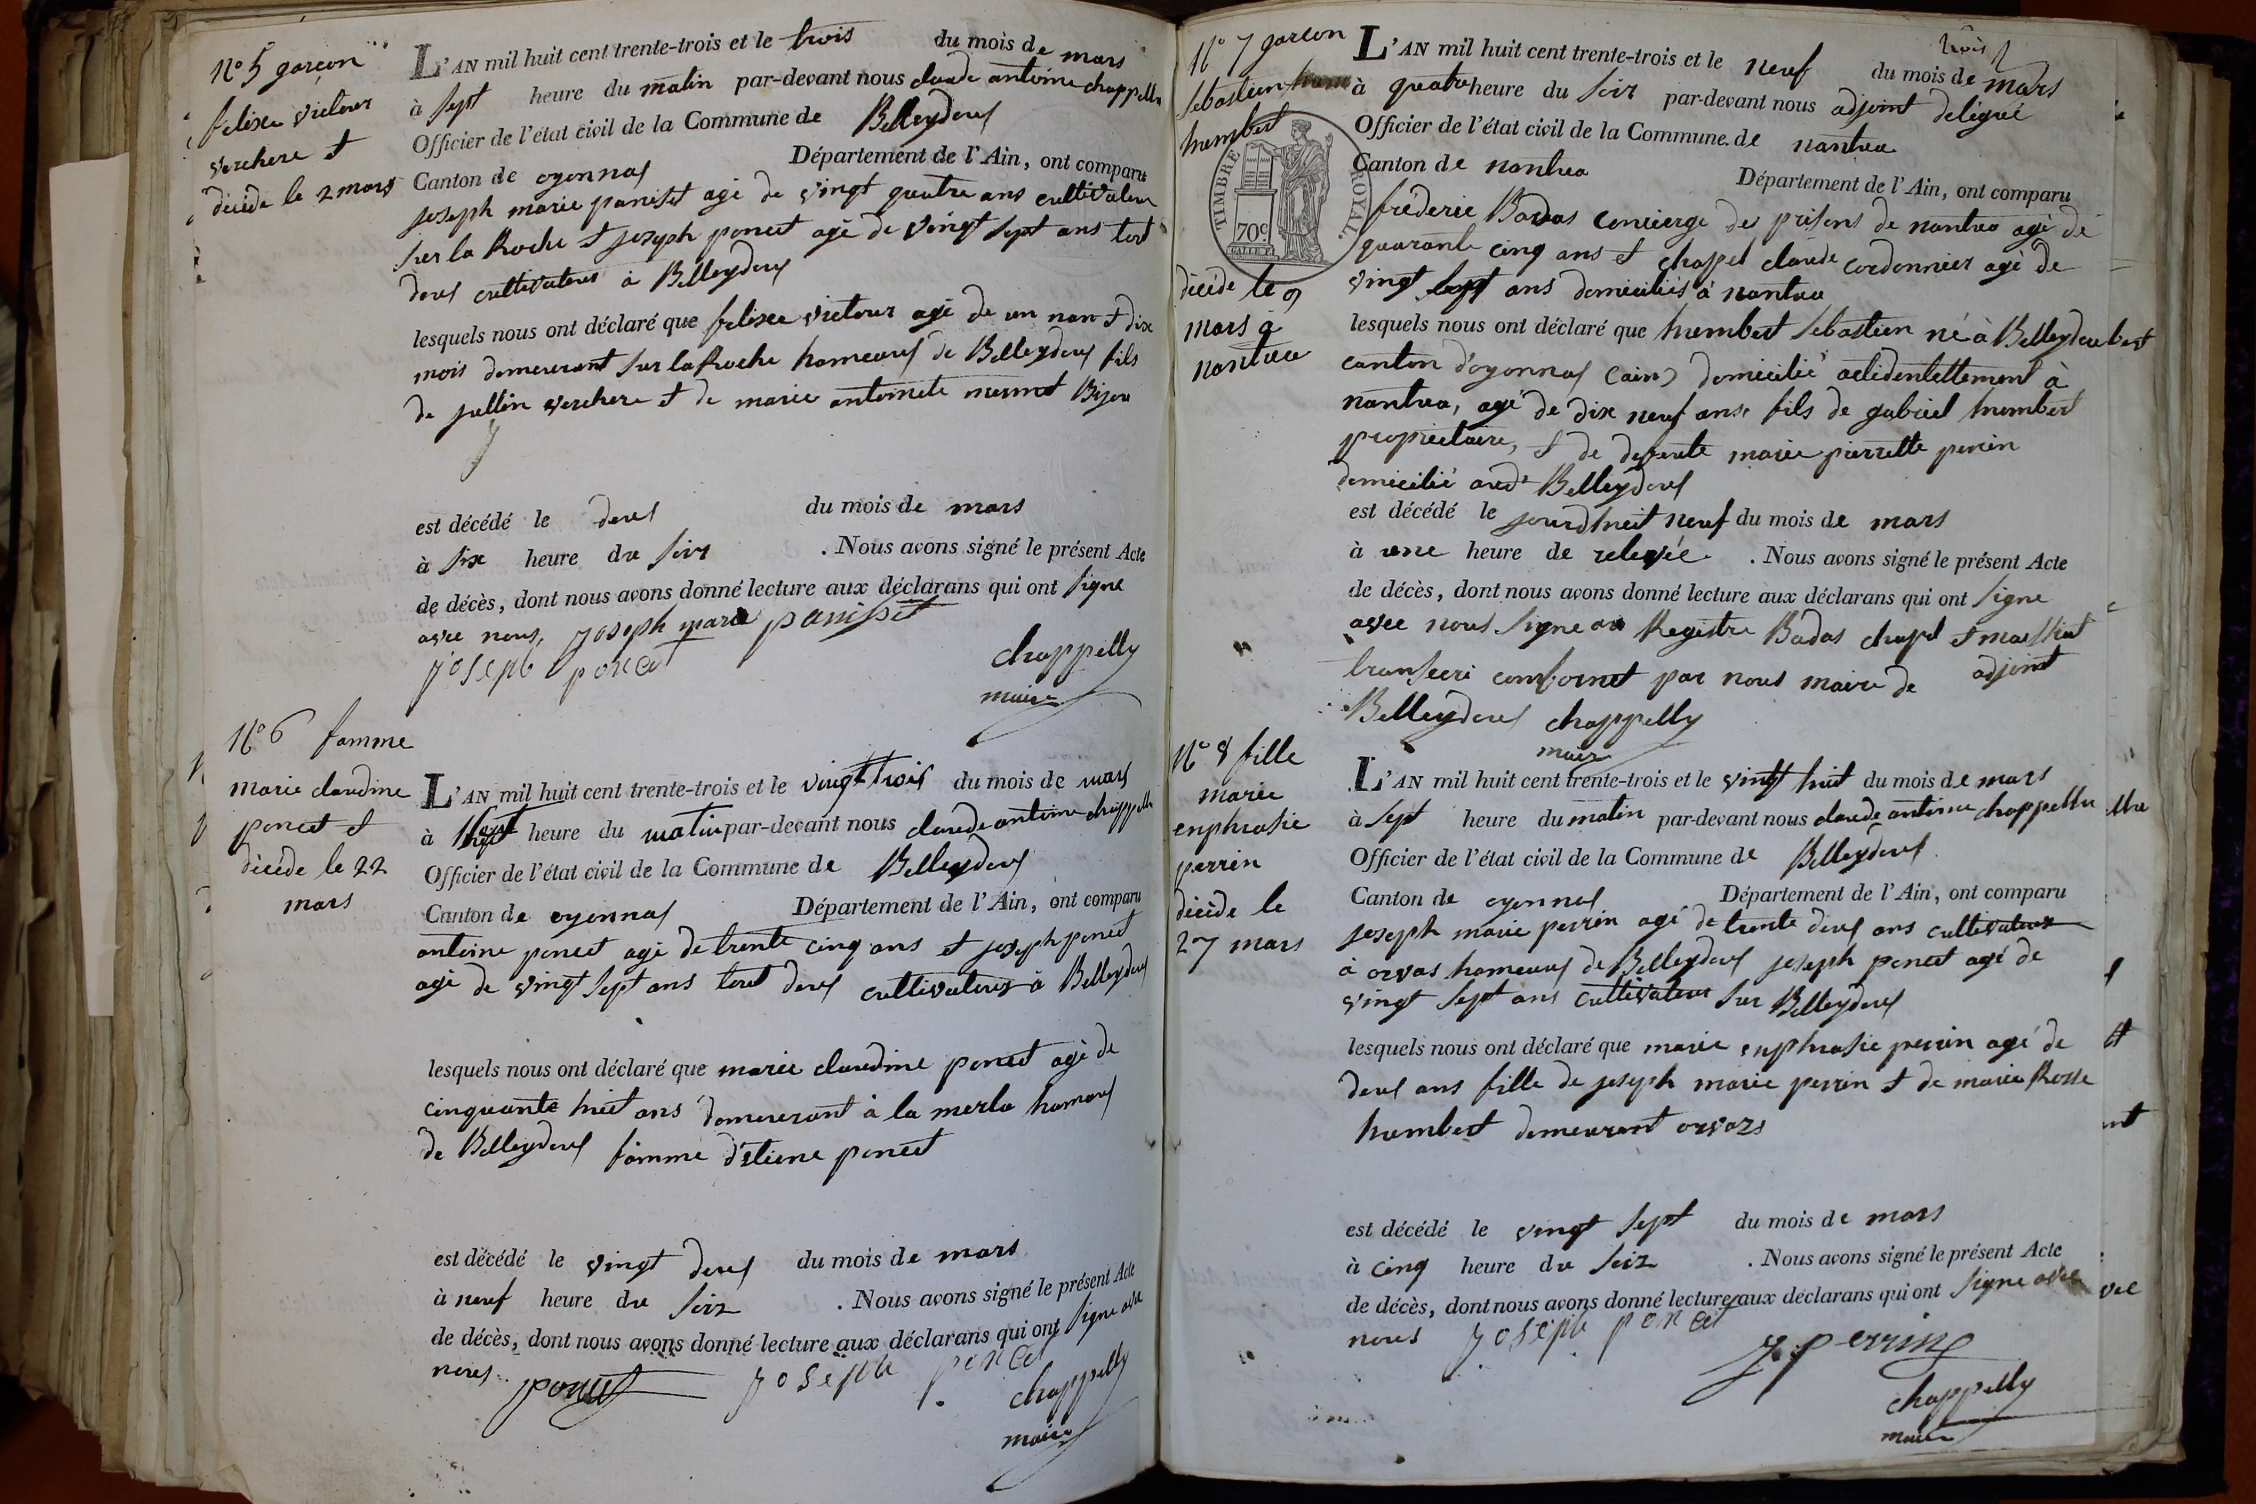 N° 5 garcon
felixe victour
verchere et
décéde le 2 mars
L'AN mil huit cent trente-trois et le trois du mois de mars
à sept heure du matin par-devant nous claude antoine chappellu
Officier de l'état civil de la Commune de Belleydoux
Canton de oyonnax Département de l'Ain, ont comparu
joseph marie panisset agé de vingt quatre ans cultivateur
sur la Roche et joseph poncet agé de vingt sept ans tout
deux cultivateur à Belleydoux
lesquels nous ont déclaré que felixe victour agé de un nan et dix
mois demeurant sur la Roche hameaux de Belleydoux fils
de jullin verchere et de marie antoinete mermet Bijou
est décédé le deux du mois de mars
à six heure du soir . Nous avons signé le présent Acte
de décès, dont nous avons donné lecture aux déclarans qui ont signe
avec nous, joseph marie panisset
joseph poncet chappelly
maire
N° 6 famme
marie claudine
poncet et
décéde le 22
mars
L'AN mil huit cent trente-trois et le vingt trois du mois de mars
à heure du matin par-devant nous claude antoine chappelle
Officier de l'état civil de la Commune de Belleydoux
Canton de oyonnax Département de l'Ain, ont comparu
antoine poncet agé de trente cinq ans et joseph poncet
agé de vingt sept ans tout deux cultivateurs à Belleydoux
lesquels nous ont déclaré que marie claudine poncet agé de
cinquante huit ans demeurant à la merla hamaux
de Belleydoux famme d'etiene poncet
est décédé le vingt deux du mois de mars
à neuf heure du soir . Nous avons signé le présent Acte
de décès, dont nous avons donné lecture aux déclarans qui ont signe avec
nous poncet joseph poncet chappelly
maire
trois
N° 7 garcon
sebastien
humbert
TIMBRE ROYAL.
70c
décéde le 9
mars à
nantua
L'AN mil huit cent trente-trois et le neuf du mois de mars
à quatre heure du soir par-devant nous adjoint deligué
Officier de l'état civil de la Commune de nantua
Canton de nantua Département de l'Ain, ont comparu
fréderic Badas concierge des prisons de nantua agé de
quarante cinq ans et chapel claude cordonnier agé de
vingt sept ans domiciliés à nantua
lesquels nous ont déclaré que humbert sebastien né à Belleydoux
canton d'oyonnax (ain) domicilié accidentellement à
nantua, agé de dix neuf ans, fils de gabriel humbert
propriétaire, et de defunte marie pierrette perrin
domicilié aud' Belleydoux
est décédé le jourdhuit neuf du mois de mars
à une heure de relevée . Nous avons signé le présent Acte
de décès, dont nous avons donné lecture aux déclarans qui ont signe
avec nous signe au Registre Badas chapel et
adjoint
transcri conforme par nous maire de
Belleydoux chappelly
maire
N° 8 fille
marie
enphrasie
perrin
décéde le
27 mars
L'AN mil huit cent trente-trois et le vingt huit du mois de mars
à sept heure du matin par-devant nous claude antoine chappellu
Officier de l'état civil de la Commune de Belleydoux
Canton de oyonnax Département de l'Ain, ont comparu
joseph marie perrin agé de trente deux ans cultivateur
à orvas hameaux de Belleydoux joseph poncet agé de
vingt sept ans cultivateur sur Belleydoux
lesquels nous ont déclaré que marie enphrasie perrin agé de
deux ans fille de joseph marie perrin et de marie Rosse
humbert demeurant orvars
est décédé le vingt sept du mois de mars
à cinq heure du soir . Nous avons signé le présent Acte
de décès, dont nous avons donné lecture aux déclarans qui ont signe avec
nous joseph poncet
j. perrin
chappelly
maire